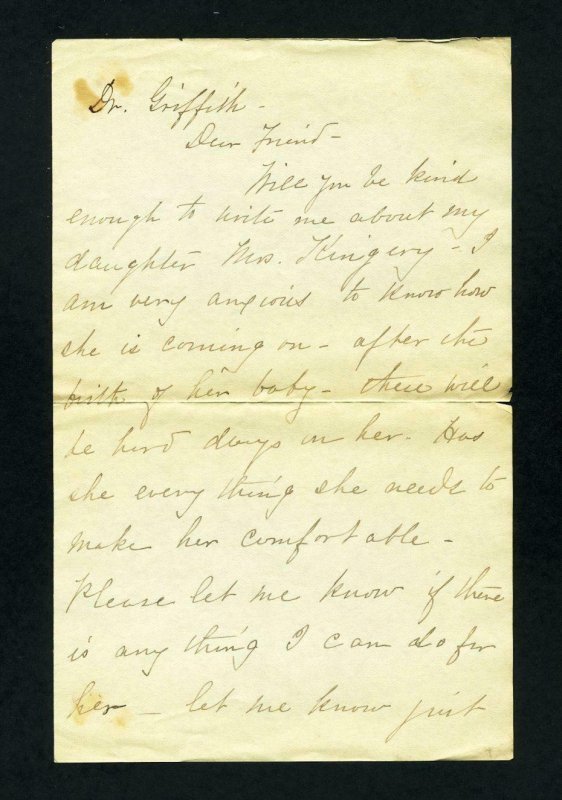 Dr. Griffith -
Dear Friend -
Will you be kind
enough to write me about my
daughter Mrs. Kingery - I
am very anxious to know how
she is coming on - after the
birth of her baby - these will
be hard days on her. Has
she every thing she needs to
make her comfortable -
Please let me know if there
is any thing I can do for
her - let me know just